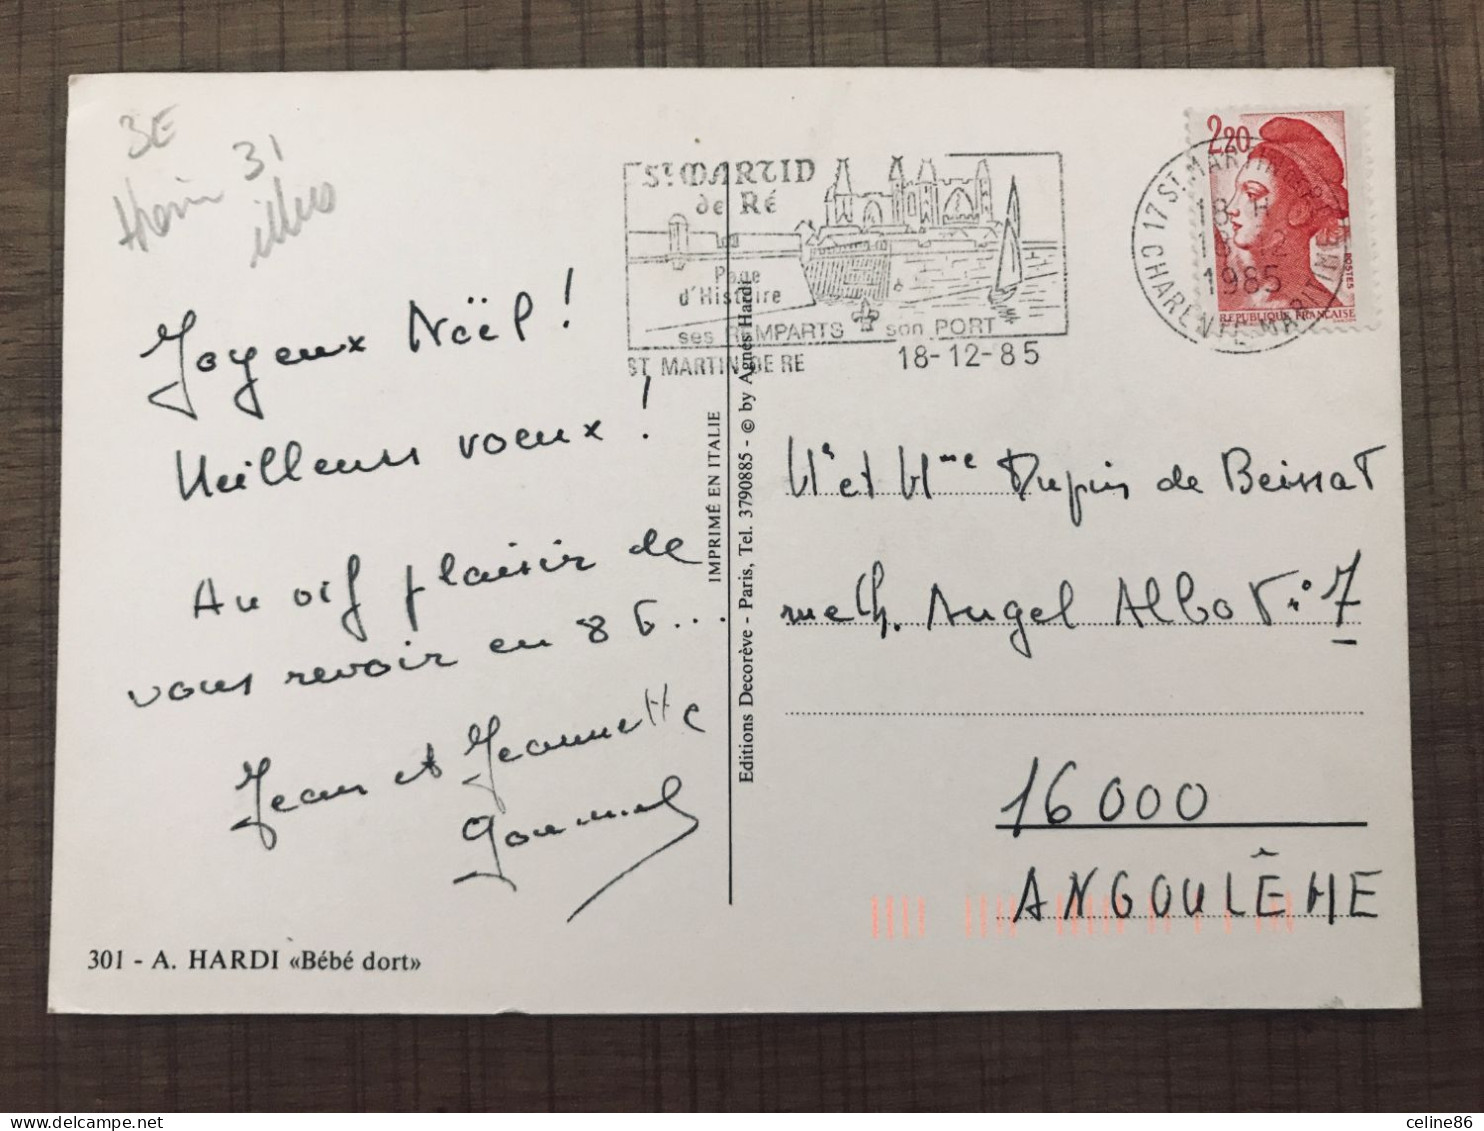 3E
31
illus
Joyeux Noël !
Meilleurs voeux !
Au vif plaisir de
vous revoir en 86...
Jean et Jeannette
301 - A. HARDI «Bébé dort»
IMPRIMÉ EN ITALIE
Editions Decorève - Paris, Tel. 3790885 - © by Agnès Hardi
St MARTIN
de Ré
Page
d'Histoire
ses REMPARTS son PORT
ST MARTIN DE RE 18-12-85
17 ST MARTIN DE RE
18 H
18-12
1985
CHARENTE MARITIME
2,20
POSTES
REPUBLIQUE FRANÇAISE
Mr et Mme Dupuis de Beissat
rue Ch. Angel Albot n° 7
16000
ANGOULÊME
celine86